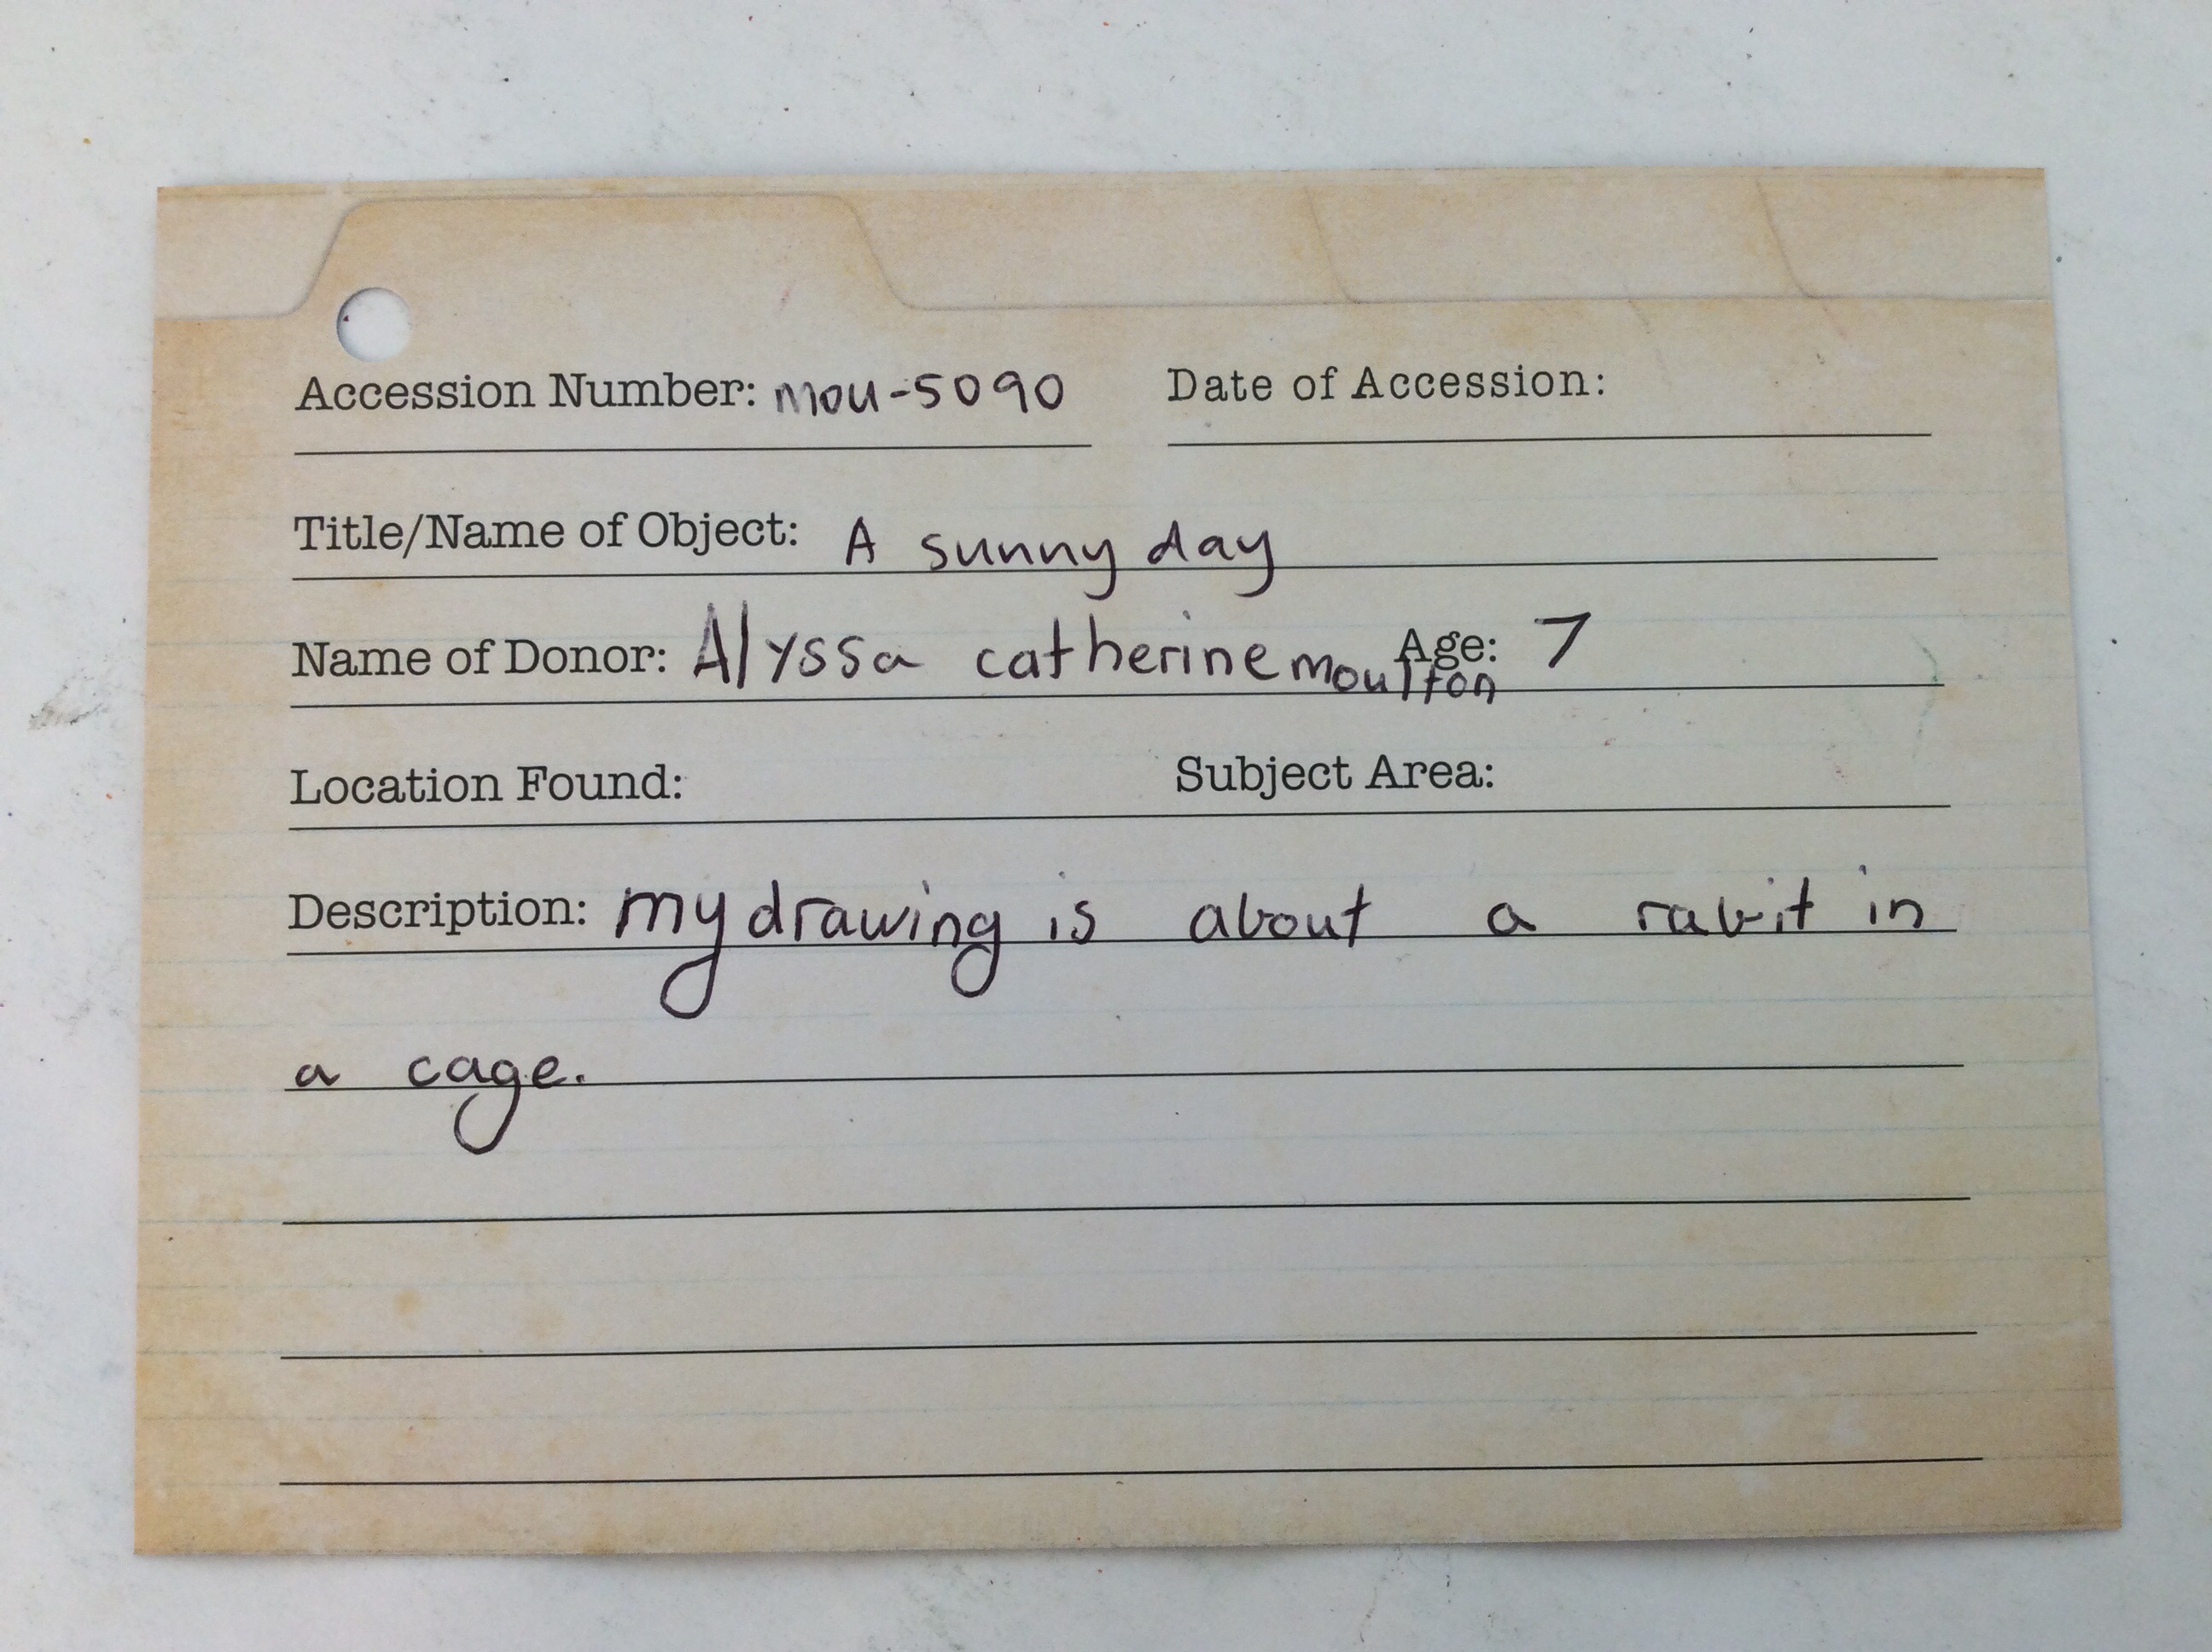 Accession Number: mou-5090 Date of Accession:
Title/Name of Object: A sunny day
Name of Donor: Alyssa catherine moulton Age: 7
Location Found: Subject Area:
Description: my drawing is about a rabit in
a cage.